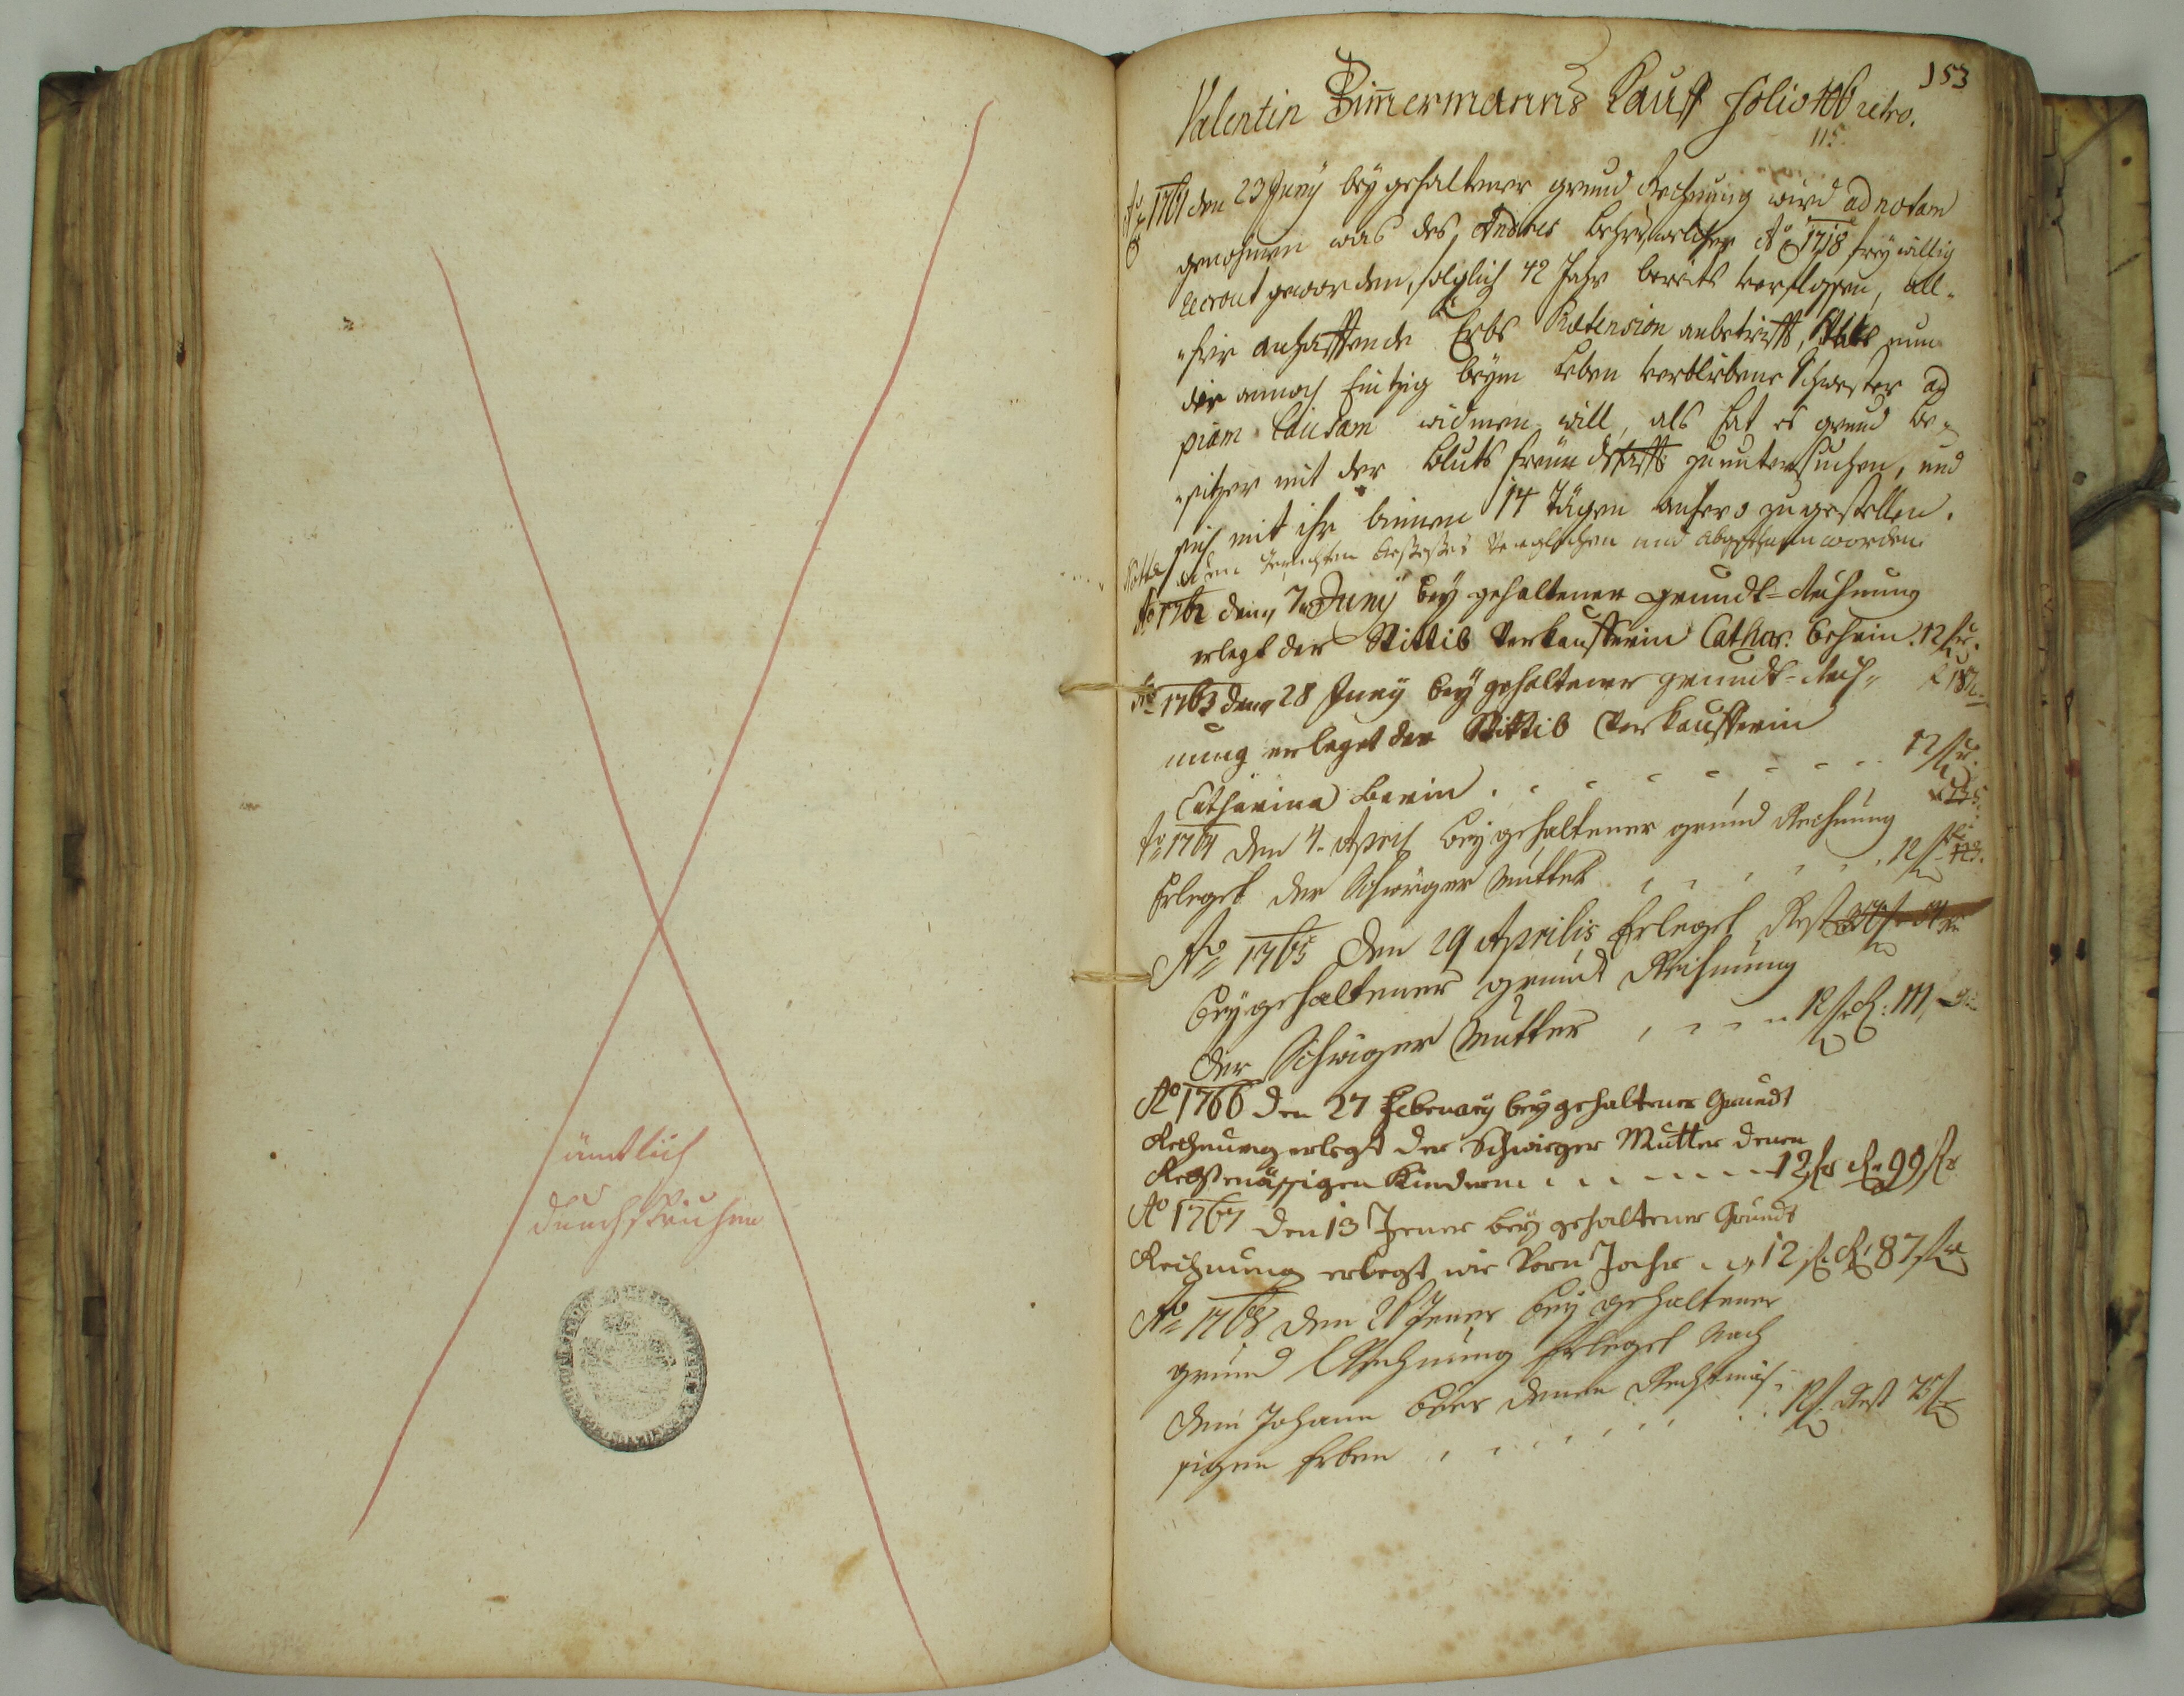 ämtlich
durchstrichen
153
Valentin Zim̄ermanns Kauff folio 106 retro.
115
Aō 1761 den 23 Juny bey gehaltener grund Rechnung wird ad notam
genohmen was des Andres welcher Aō 1718 freywillig
recrout geworden, folglich 42 Jahr bereits verflossen, all-
hier anhafftende Erbs Prætension anbetrifft, nun
die annoch Eintzig beym Leben verbliebene Schwester ad
piam Causam widmen will, als hat es grund be-
sitzer mit der bluts freundschafft zu untersuchen, und
sich mit ihr binnen 14 Tägen anhero zugestellen.
verglichen und worden
Aō 1762 den 7 Juny bey gehaltener grundt-Rechnung
erlegt der Stittib Verkaufferin Cathar. Behrin. 12 fr.
Aō 1763 den 28 Juny bey gehaltener grundt-Rech-
nung erleget der Stittib Verkaufferin
Catharina Berin . . . . . . . . 12 fr.
Aō 1764 den 4. April bey gehaltener grund Rechnung
Erleget der Schwiger Mutter . . . . . 12 f
Aō 1765 den 29 Aprilis Erleget Rest
bey gehaltener grundt Rechnung
der Schwiger Mutter . . . . 12 f. R: 111
Aō 1766 den 27 Februarij bey gehaltener Grundt
Rechnung erlegt der Schwieger Mutter denen
Rechtmässigen Kindern . . . . . . 12 fr R. 99 fr
Aō 1767 den 13 Jener bey gehaltener Grundt
Rechnung erlegt wie Vorn Jahr . . 12 f. R: 87 fr
Aō 1768 den 26 Jener bey gehaltener
grund Rechnung Erleget Nach
dem Johann Beer denen Rechtmäs-
sigen Erben . . . . . . . 12 f. Rest 75 f